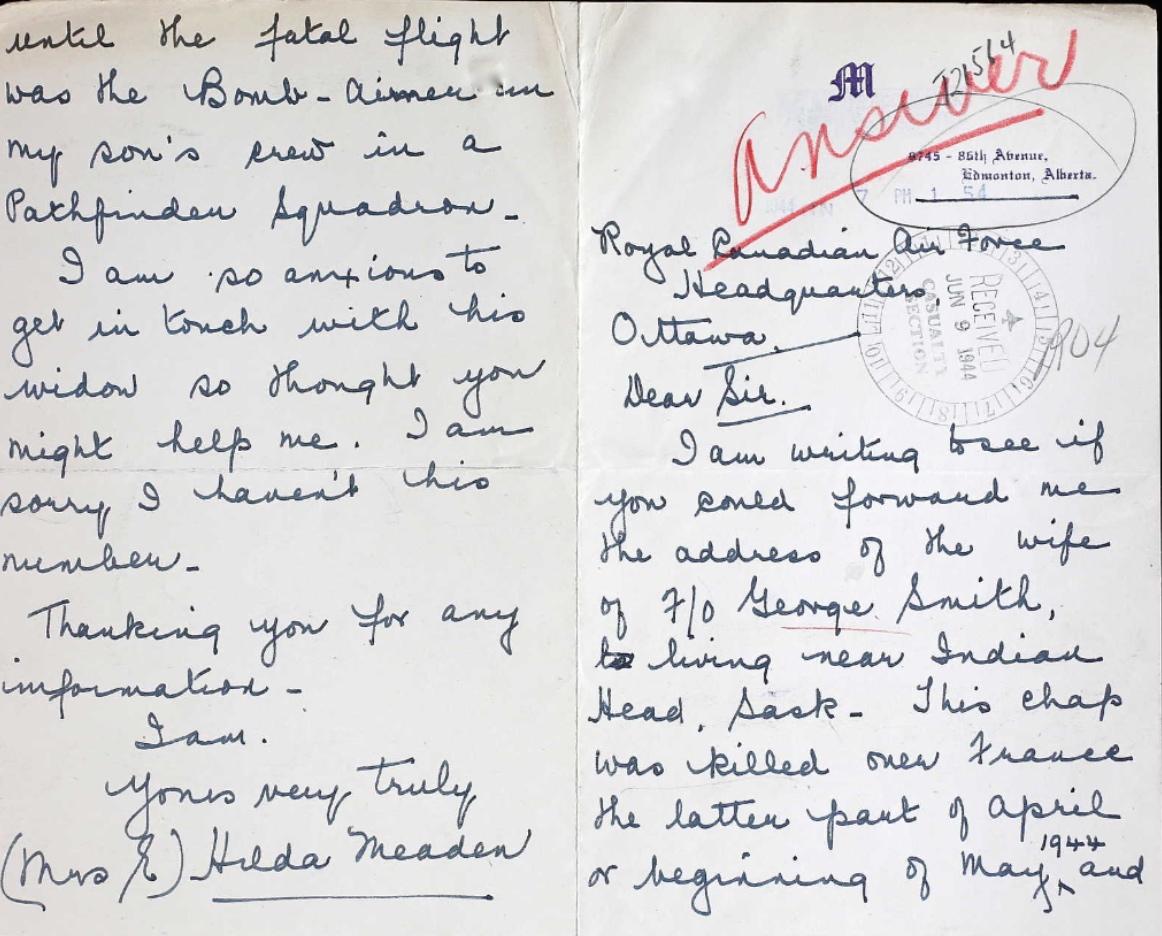 M
J21564
answer
9745 - 85th Avenue,
Edmonton, Alberta.
1944 JUN 7 PM 1 54
Royal Canadian Air Force
Headquarters
Ottawa.
RECEIVED
JUN 9 1944
CASUALTY
SECTION
Dear Sir.
I am writing to see if
you could forward me
the address of the wife
of F/O George Smith,
living near Indian
Head, Sask- This chap
was killed over France
the latter part of April
or beginning of May, 1944 and
until the fatal flight
was the Bomb-Aimer in
my son's crew in a
Pathfinder Squadron-
I am so anxious to
get in touch with his
widow so thought you
might help me. I am
sorry I haven't his
number-
Thanking you for any
information-
I am.
Yours very truly
(Mrs E) Hilda Meaden